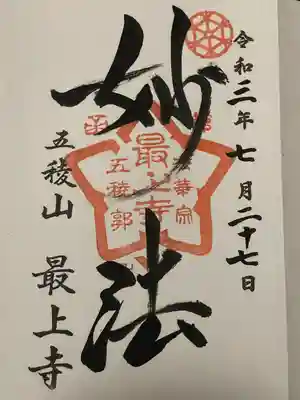 令和三年七月二十七日
妙法
函
最上寺
法華宗
五稜郭
五稜山 最上寺